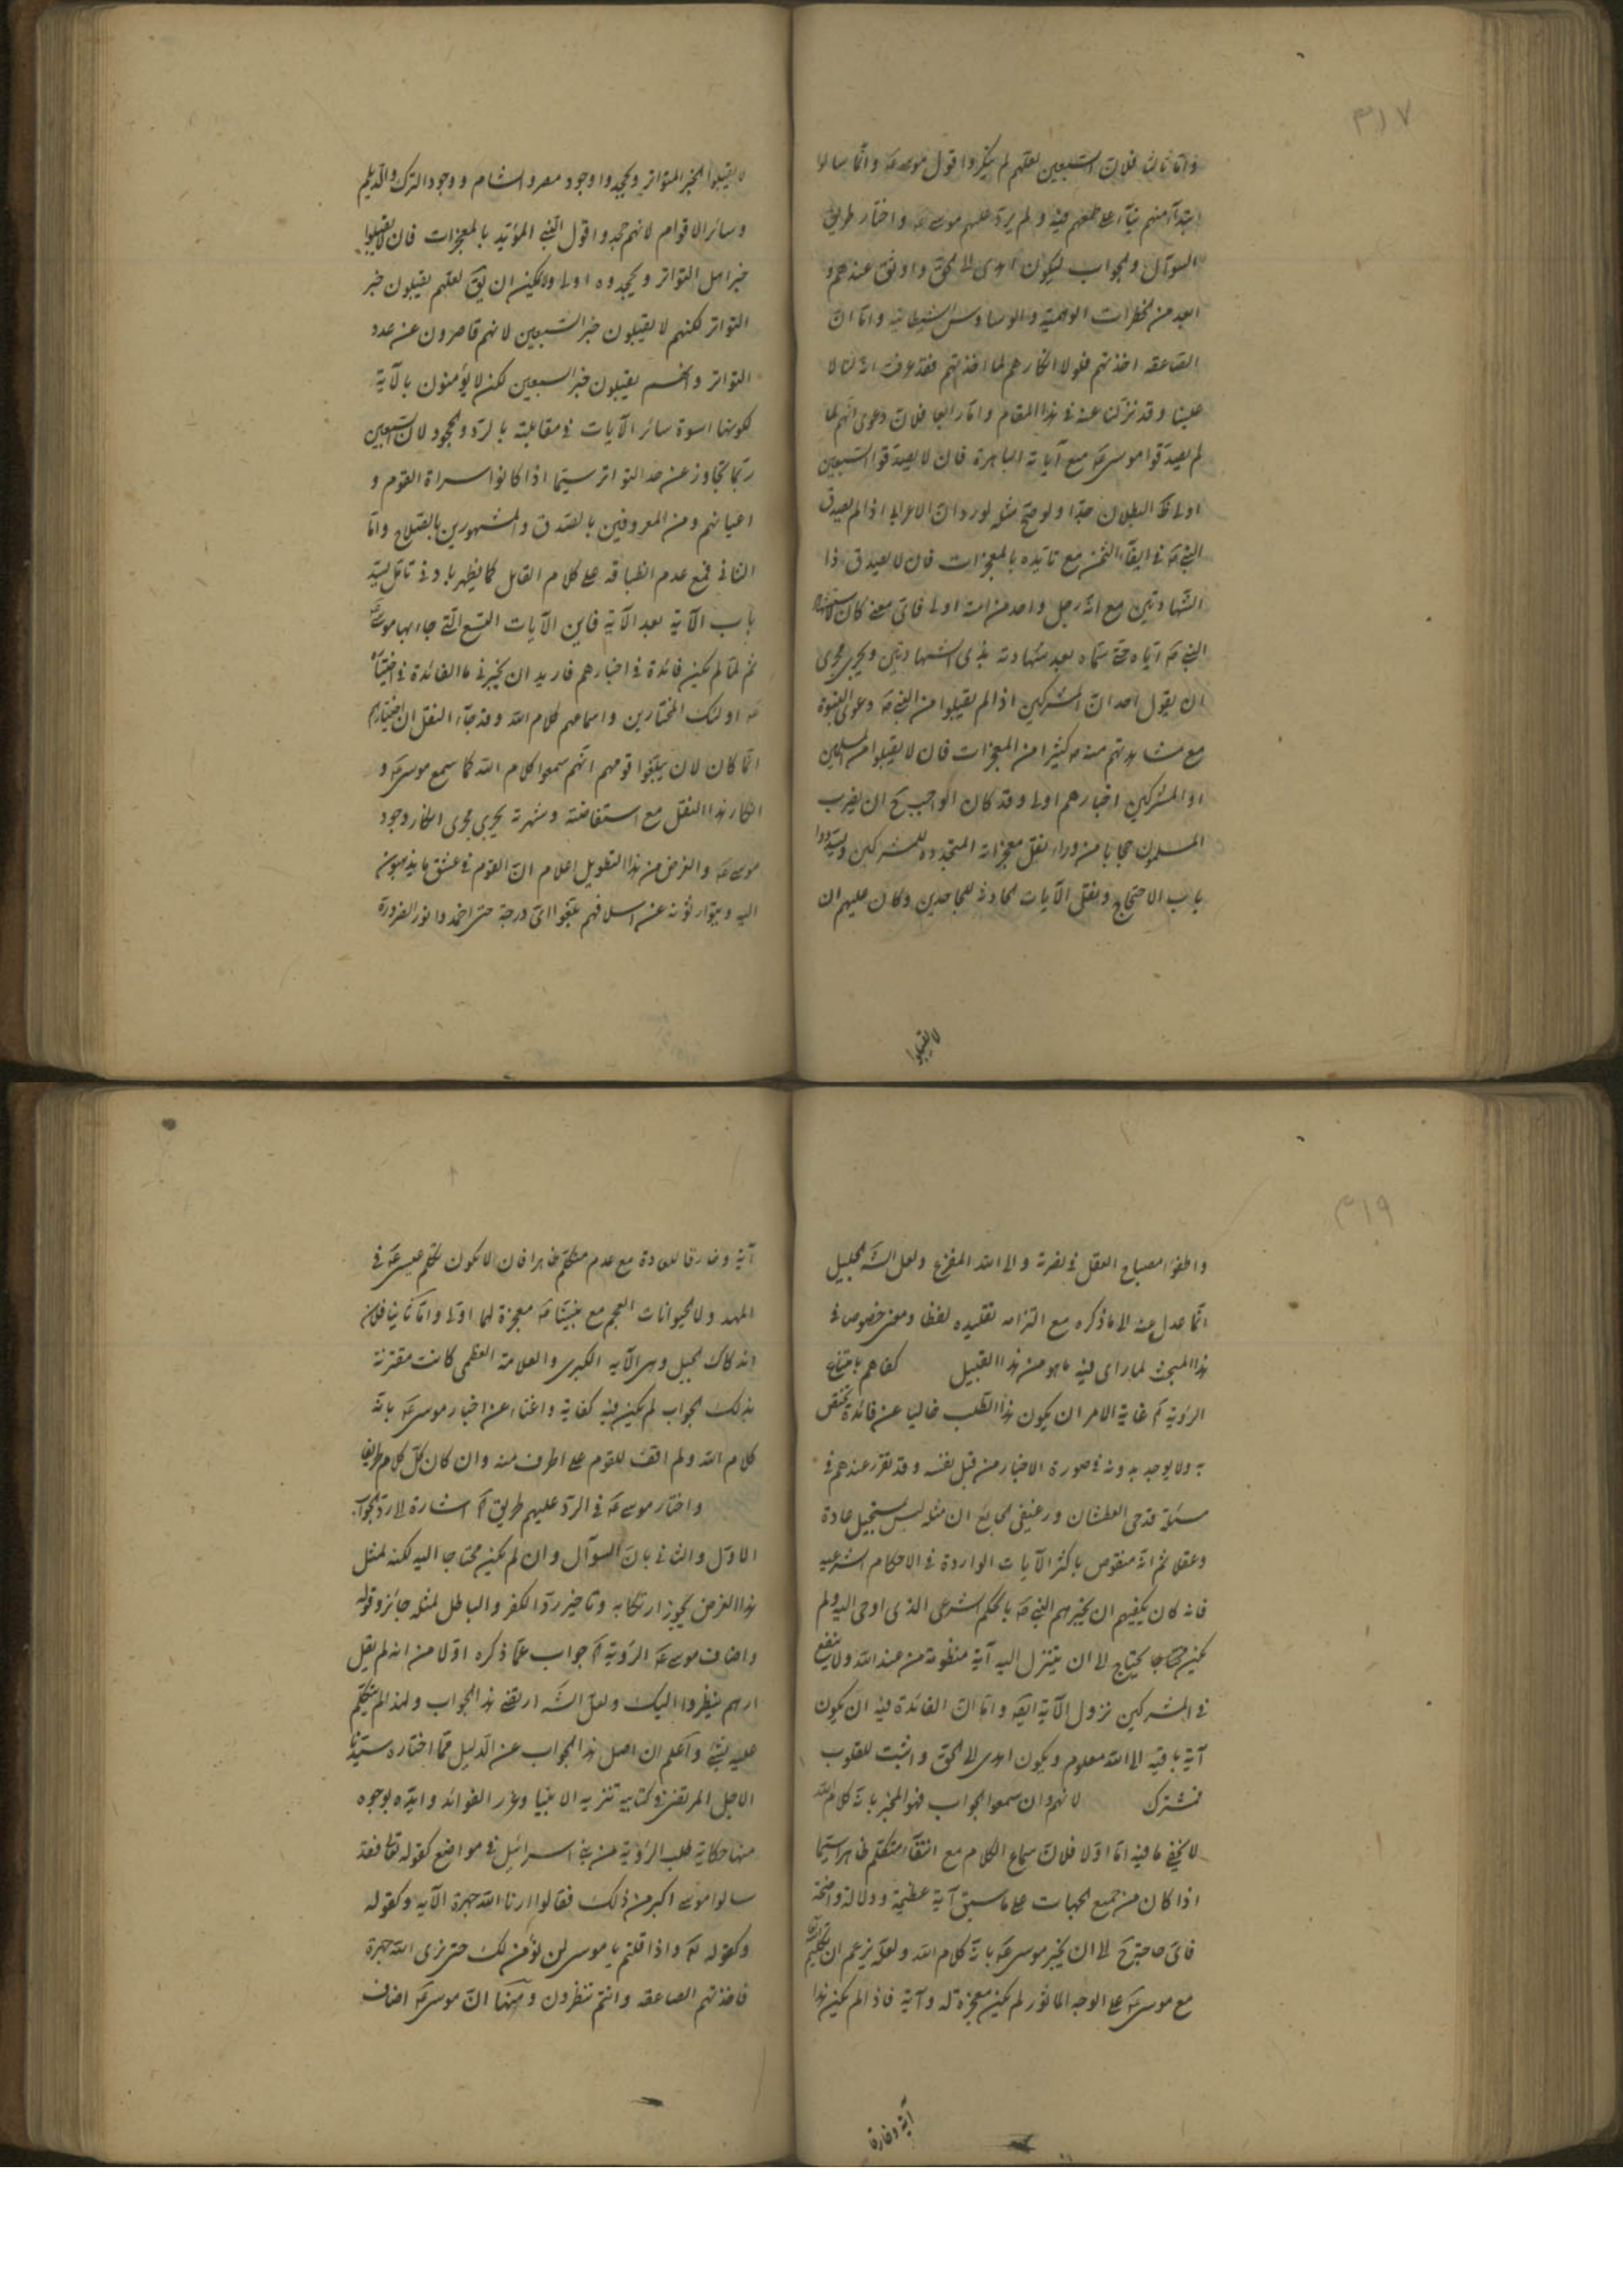 ۳۱۷
واما ثالثا فلان السبعین لعلهم لم ینکروا قول موسی ع وانما سالوا
ابتدآء منهم بنآء علی طمعهم فیه ولم یرد علیهم موسی ع واختار طریق
السوآل والجواب لیکون اهدی الی الحق واوثق عندهم و
ابعد من الخطرات الوهمیة والوساوس الشیطانیة واما ان
الصاعقة اخذتهم فلولا انکارهم لما اخذتهم فقد عرف انه لنا لا
علینا وقد نزلنا عنه فی هذا المقام واما رابعا فلان دعوی انهم لما
لم یصدقوا موسی ع مع آیاته الباهرة فان لا یصدقوا السبعین
اولی ظ البطلان جدا ولو صح مثله لورد ان الاعرابی اذا لم یصدق
النبی ص فی ایفآء الثمن مع تایده بالمعجزات فان لا یصدق ذا
الشهادتین مع انه رجل واحد من امته اولی فای معنی کان لاستشهاد
النبی ص ایاه حتی سماه بعد شهادته بذی الشهادتین ویجری مجری
ان یقول احد ان المشرکین اذا لم یقبلوا من النبی ص دعوی النبوة
مع مشاهدتهم منه ص کثیرا من المعجزات فان لا یقبلوا من المسلمین
او المشرکین اخبارهم اولی وقد کان الواجب ح ان یضرب
المسلمون حجابا من وراء نقل معجزاته المتجددة للمشرکین ویسددوا
باب الاحتجاج وبنقل الآیات الحادثة للجاحدین وکان علیهم ان
لا یقبلوا
لا یقبلوا الخبر المتواتر ویجحدوا وجود مصر والشام ووجود الترک والدیلم
وسائر الاقوام لانهم جحدوا قول النبی المؤید بالمعجزات فان لا یقبلوا
خبر اهل التواتر ویجحدوه اولی ولا یمکن ان یق لعلهم یقبلون خبر
التواتر لکنهم لا یقبلون خبر السبعین لانهم قاصرون عن عدد
التواتر وانهم یقبلون خبر السبعین لکن لا یؤمنون بالآیة
لکونها اسوة سائر الآیات فی مقابلته بالرد والجحود لان السبعین
ربما تجاوز عن حد التواتر سیما اذا کانوا سراة القوم و
اعیانهم ومن المعروفین بالصدق والمشهورین بالصلاح واما
الثانی فمع عدم انطباقه علی کلام القایل کما یظهر بادنی تامل یسد
باب الآیة بعد الآیة فاین الآیات التسع التی جاء بها موسی ع
ثم لما لم یکن فائدة فی اخبارهم فارید ان یخبرنی ما الفائدة فی اختیاره
ع اولئک المختارین واسماعهم کلام الله وقد جآء النقل ان اختیارهم
انما کان لان یبلغوا قومهم انهم سمعوا کلام الله کما سمع موسی ع و
انکار هذا النقل مع استفاضته وشهرته یجری مجری انکار وجود
موسی ع والغرض من هذا التطویل اعلام ان القوم فی عشق ما یذهبون
الیه ویتوارثونه عن اسلافهم بلغوا ای درجة حتی اخمدوا نور الضرورة
۳۱۹
واطفؤا مصباح العقل فی نصرته والی الله المفزع ولعل الش الجلیل
انما عدل عنه الی ما ذکره مع التزامه تقلیده لفظا ومعنی خصوصا فی
هذا المبحث لما رای فیه ما هو من هذا القبیل کفاهم بامتناع
الرؤیة آه غایة الامر ان یکون هذا الطلب خالیا عن فائدة تختص
به ولا یوجد بدونه فی صورة الاخبار من قبل نفسه وقد تقرر عندهم فی
مسئلة قدحی العطشان ورغیفی الجایع ان مثله لیس بمستحیل عادة
وعقلا ثم انه منقوص باکثر الآیات الواردة فی الاحکام الشرعیه
فانه کان یکفیهم ان یخبرهم النبی ص بالحکم الشرعی الذی اوحی الیه ولم
یکن محتاجا یحتاج الی ان یتنزل الیه آیة منظومة من عند الله ولا ینفع
فی المشرکین نزول الآیة ایضه واما ان الفائدة فیه ان یکون
آیة باقیه الی الله معلوم ویکون اهدی الی الحق واثبت للقلوب
فمشترک لانهم وان سمعوا الجواب فهو المخبر بانه کلام الله
لا یخفی ما فیه اما اولا فلان سماع الکلام مع انتفآء متکلم ظاهرا سیما
اذا کان من جمیع الجهات علی ما سبق آیة عظیمة ودلالة واضحة
فای حاجة ح الی ان یخبر موسی ع بانه کلام الله ولعله یزعم ان تکلیم الله
مع موسی ع علی الوجه الماثور لم یکن معجزة له وآیة فاذا لم یکن هذا
آیة وخارقا
آیة وخارقا للعادة مع عدم متکلم ظاهرا فان لا یکون تکلم عیسی ع فی
المهد ولا الحیوانات العجم مع نبینا ص معجزة لهما اولی واما ثانیا فلان
اندکاک الجبل وهی الآیه الکبری والعلامة العظمی کانت مقترنة
بذلک الجواب لم یکن فیه کفایة واغناء عن اخبار موسی ع بانه
کلام الله ولم اقف للقوم علی اطرف منه وان کان کل کلامهم طریفا
واختار موسی ع فی الرد علیهم طریق آه اشارة الی رد الجواب
الاول والثانی بان السوآل وان لم یکن محتاجا الیه لکنه لمثل
هذا الغرض یجوز ارتکابه وتاخیر رد الکفر والباطل لمثله جائز وقوله
واضاف موسی ع الرؤیة آه جواب عما ذکره اولا من انه لم یقل
ارهم ینظروا الیک ولعل الش ارتضی هذا الجواب ولهذا لم یتکلم
علیه بشئ واعلم ان اصل هذا الجواب عن الدلیل مما اختاره سیدنا
الاجل المرتضی فی کتابیه تنزیه الانبیا وغرر الفوائد وایده بوجوه
منها حکایة طلب الرؤیة من بنی اسرائیل فی مواضع کقوله تعالی فقد
سالوا موسی اکبر من ذلک فقالوا ارنا الله جهرة الآیه وکقوله
وکقوله تع واذا قلتم یا موسی لن نؤمن لک حتی نری الله جهرة
فاخذتهم الصاعقه وانتم تنظرون ومنها ان موسی ع اضاف